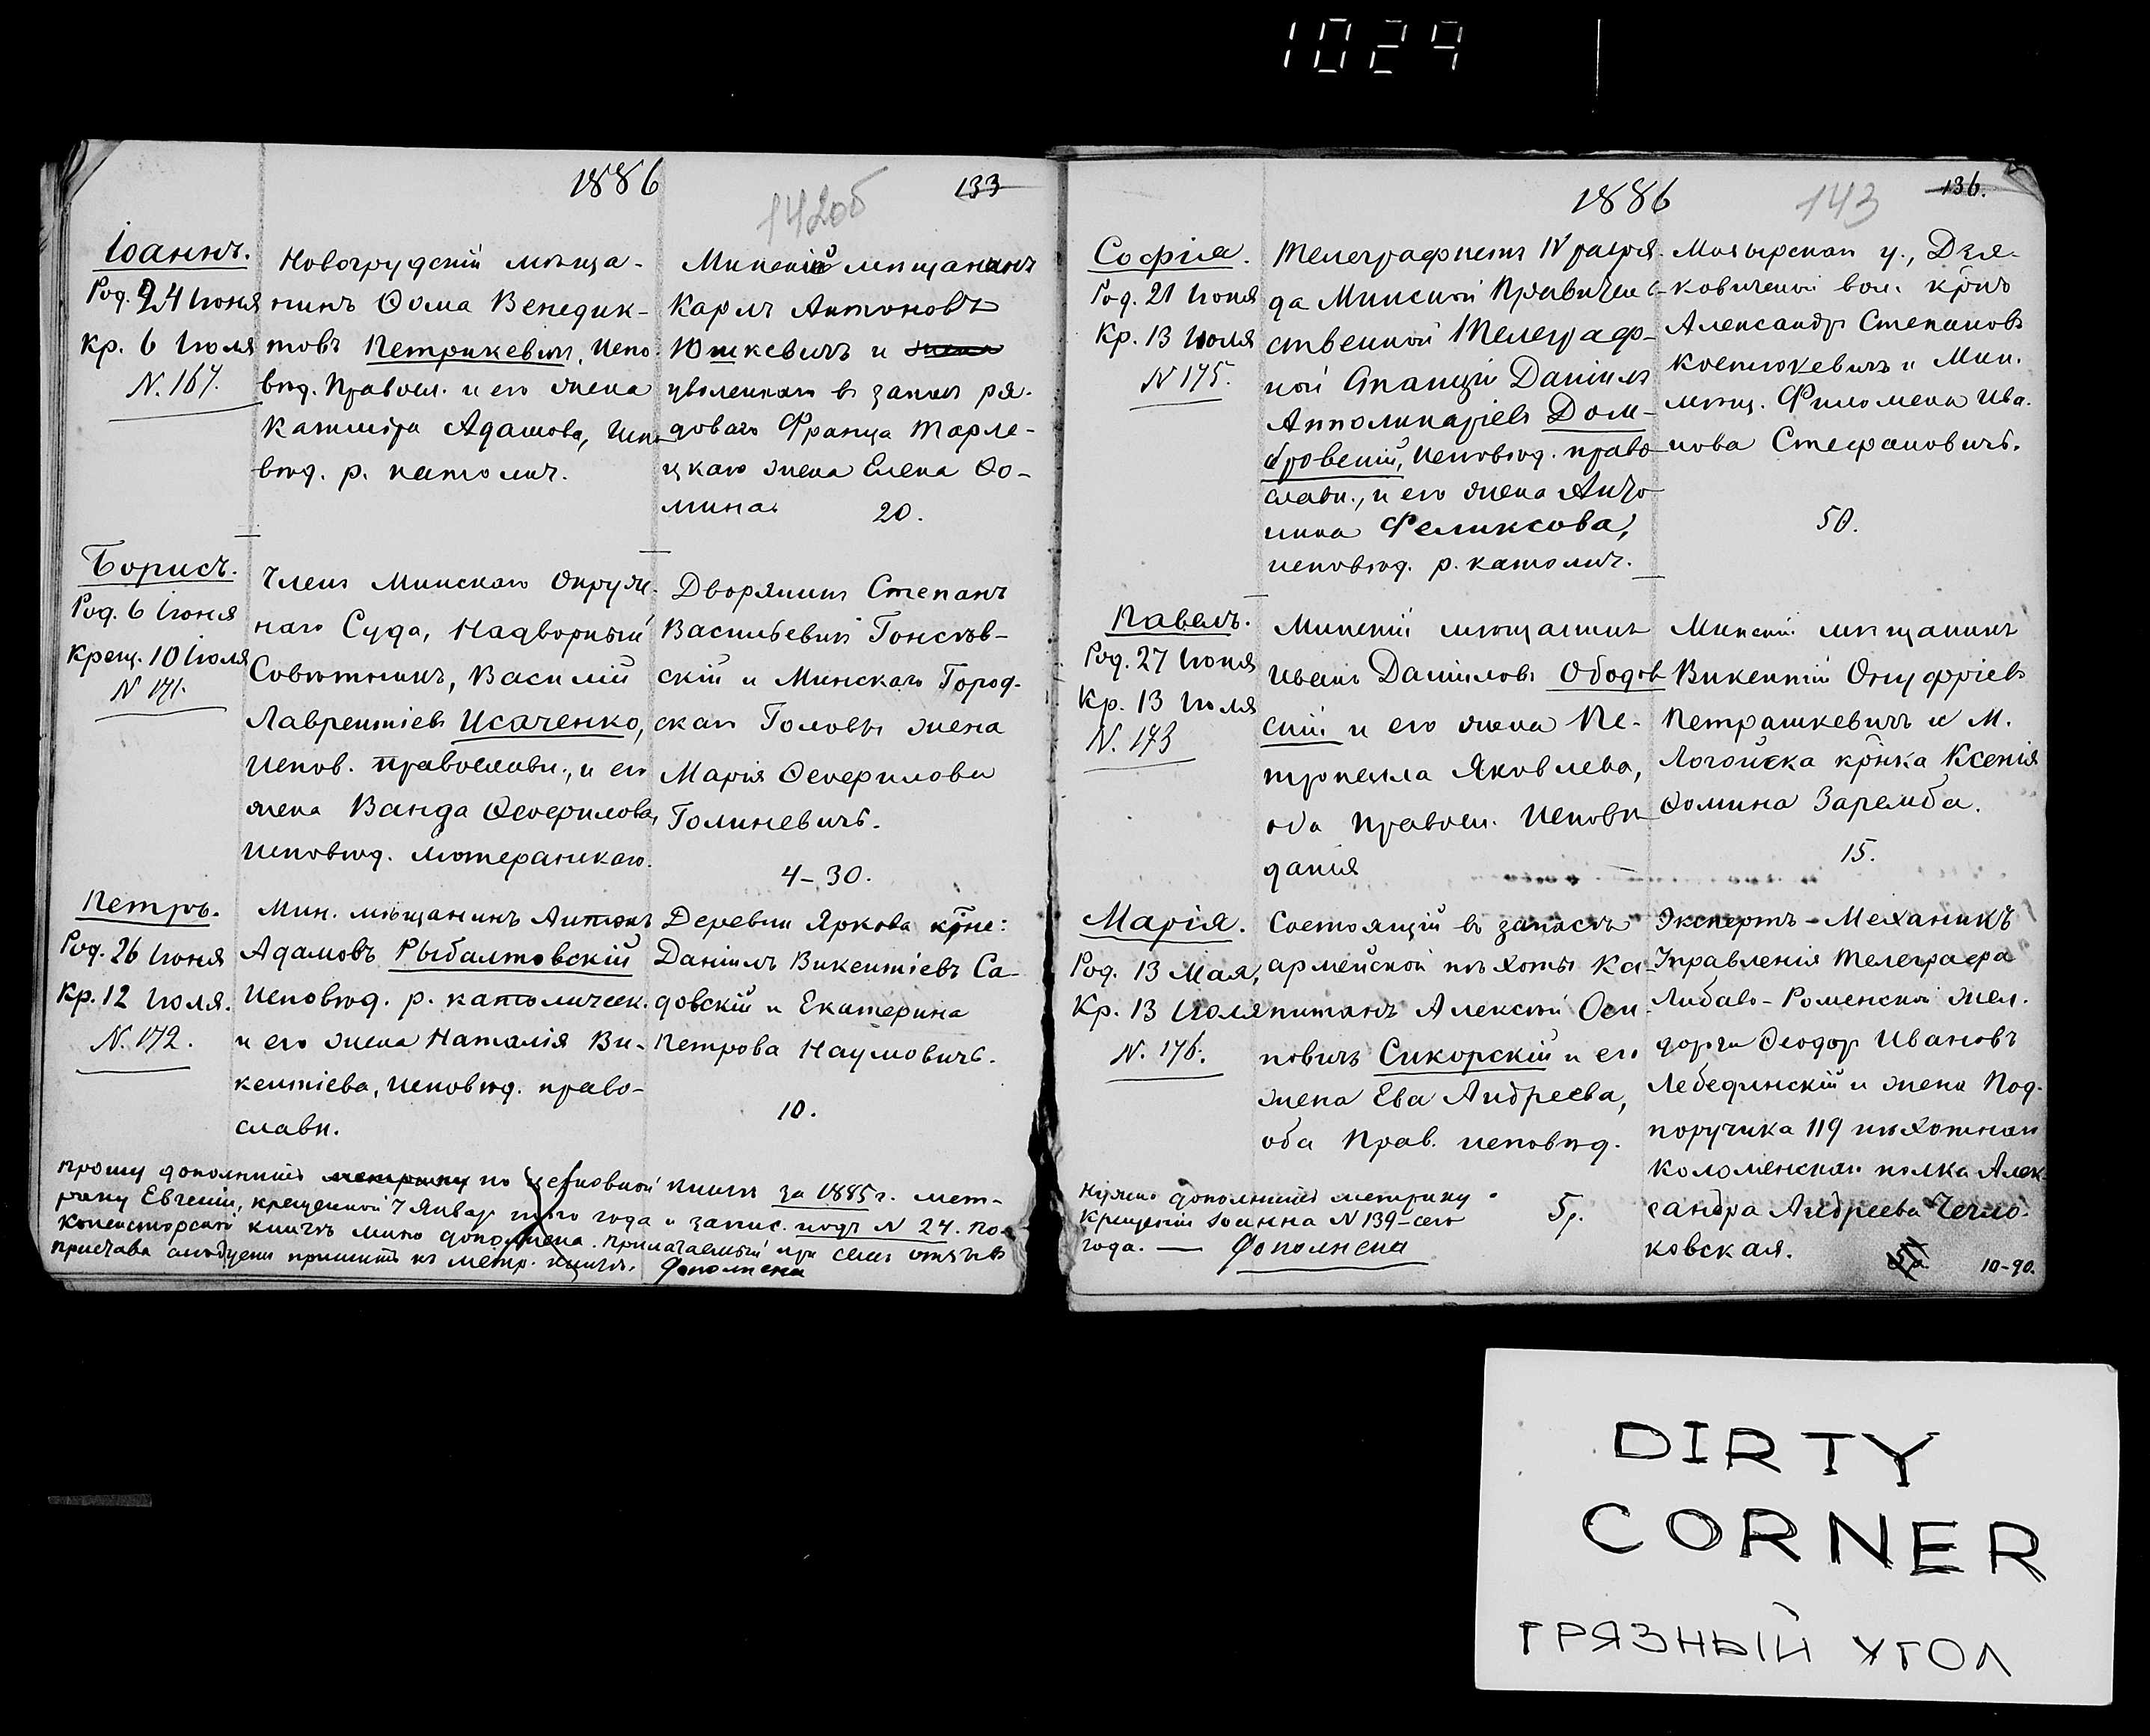 1029
1886
142об
133
Іоаннъ.
Род. 24 Іюня
Кр. 6 Іюля
N. 167.
Новогрудскій мѣща-
нинъ Ѳома Венедик-
товъ Петрикевичъ, испо-
вѣд. правосл. и его жена
Адамова,
вѣд. р. католич.
Минскій мѣщанинъ
Карлъ Антоновъ
Юшкевичъ и жена
уволеннаго въ запас ря-
доваго Франца Марле-
цкаго жена Елена Ѳо-
мина.
20.
Борисъ.
Род. 6 Іюня
Крещ. 10 Іюля
N 171.
Членъ Минскаго Окруж-
наго Суда, Надворный
Совѣтникъ, Василій
Лаврентіевъ Исаченко,
испов. православн., и его
жена Ванда Ѳеофилова,
исповѣд. лютеранскаго.
Дворянинъ Степанъ
Васильевичъ
скій и Минскаго Город-
скаго Головы жена
Марія Ѳеофилова
Голиневичъ.
4-30.
Петръ.
Род. 26 Іюня
Кр. 12 Іюля.
N. 172.
Мин. мѣщанинъ Антонъ
Адамовъ Рыбалтовскій
исповѣд. р. католическ.
и его жена Наталія Ви-
кентіева, исповѣд. право-
славн.
Деревни Яркова
Даніилъ Викентіевъ Са-
довскій и Екатерина
Петрова Наумовичъ.
10.
Прошу дополнить метрику по церковной книгѣ за 1885 г. мет-
рику Евгеніи, крещенной 7 Январ. того года и запис. подъ N 24. По
консисторской книгѣ мною дополнена. Прилагаемый при семъ отзывъ
пристава слѣдуетъ пришить къ метр. книгѣ. Дополнена
1886
143
136.
Софія.
Род. 21 Іюня
Кр. 13 Іюля
N 175.
Телеграфистъ IV разря-
да Минской Правитель-
ственной Телеграф-
ной Станціи Даніилъ
Апполинаріевъ Дом-
бровскій, исповѣд. право-
славн., и его жена Анто-
нина Феликсова,
исповѣд. р. католич.
Мозырскаго у., Дзя-
ковичской вол. крнъ
Александръ Степановъ
Костюкевичъ и Мин.
мѣщ. Филомена Ива-
нова Стефановичъ.
50.
Павелъ.
Род. 27 Іюня
Кр. 13 Іюля
N. 173
Минскій мѣщанинъ
Иванъ Даниловъ Ободов-
скій и его жена Пе-
тронелла Яковлева,
оба правосл. исповѣ-
данія
Минскій мѣщанинъ
Викентій Онуфріевъ
Петрашкевичъ и М.
Логойска крнка Ксенія
Ѳомина Заремба.
15.
Марія.
Род. 13 Мая,
Кр. 13 Іюля
N. 176.
Состоящій въ запасѣ
армейской пѣхоты ка-
питанъ Алексѣй Оси-
повичъ Сикорскій и его
жена Ева Андреева,
оба Прав. исповѣд.
Экспертъ-Механикъ
Управленія Телеграфа
Либаво-Роменской жел.
дороги Ѳеодоръ Ивановъ
Лебединскій и жена Под-
поручика 119 пѣхотнаго
Коломенскаго полка Алек-
сандра Андреева
ковская.
10-90.
Нужно дополнить метрику о
крещеніи Іоанна N 139-сего
года. — Дополнена
5р.
DIRTY
CORNER
ГРЯЗНЫЙ УГОЛ